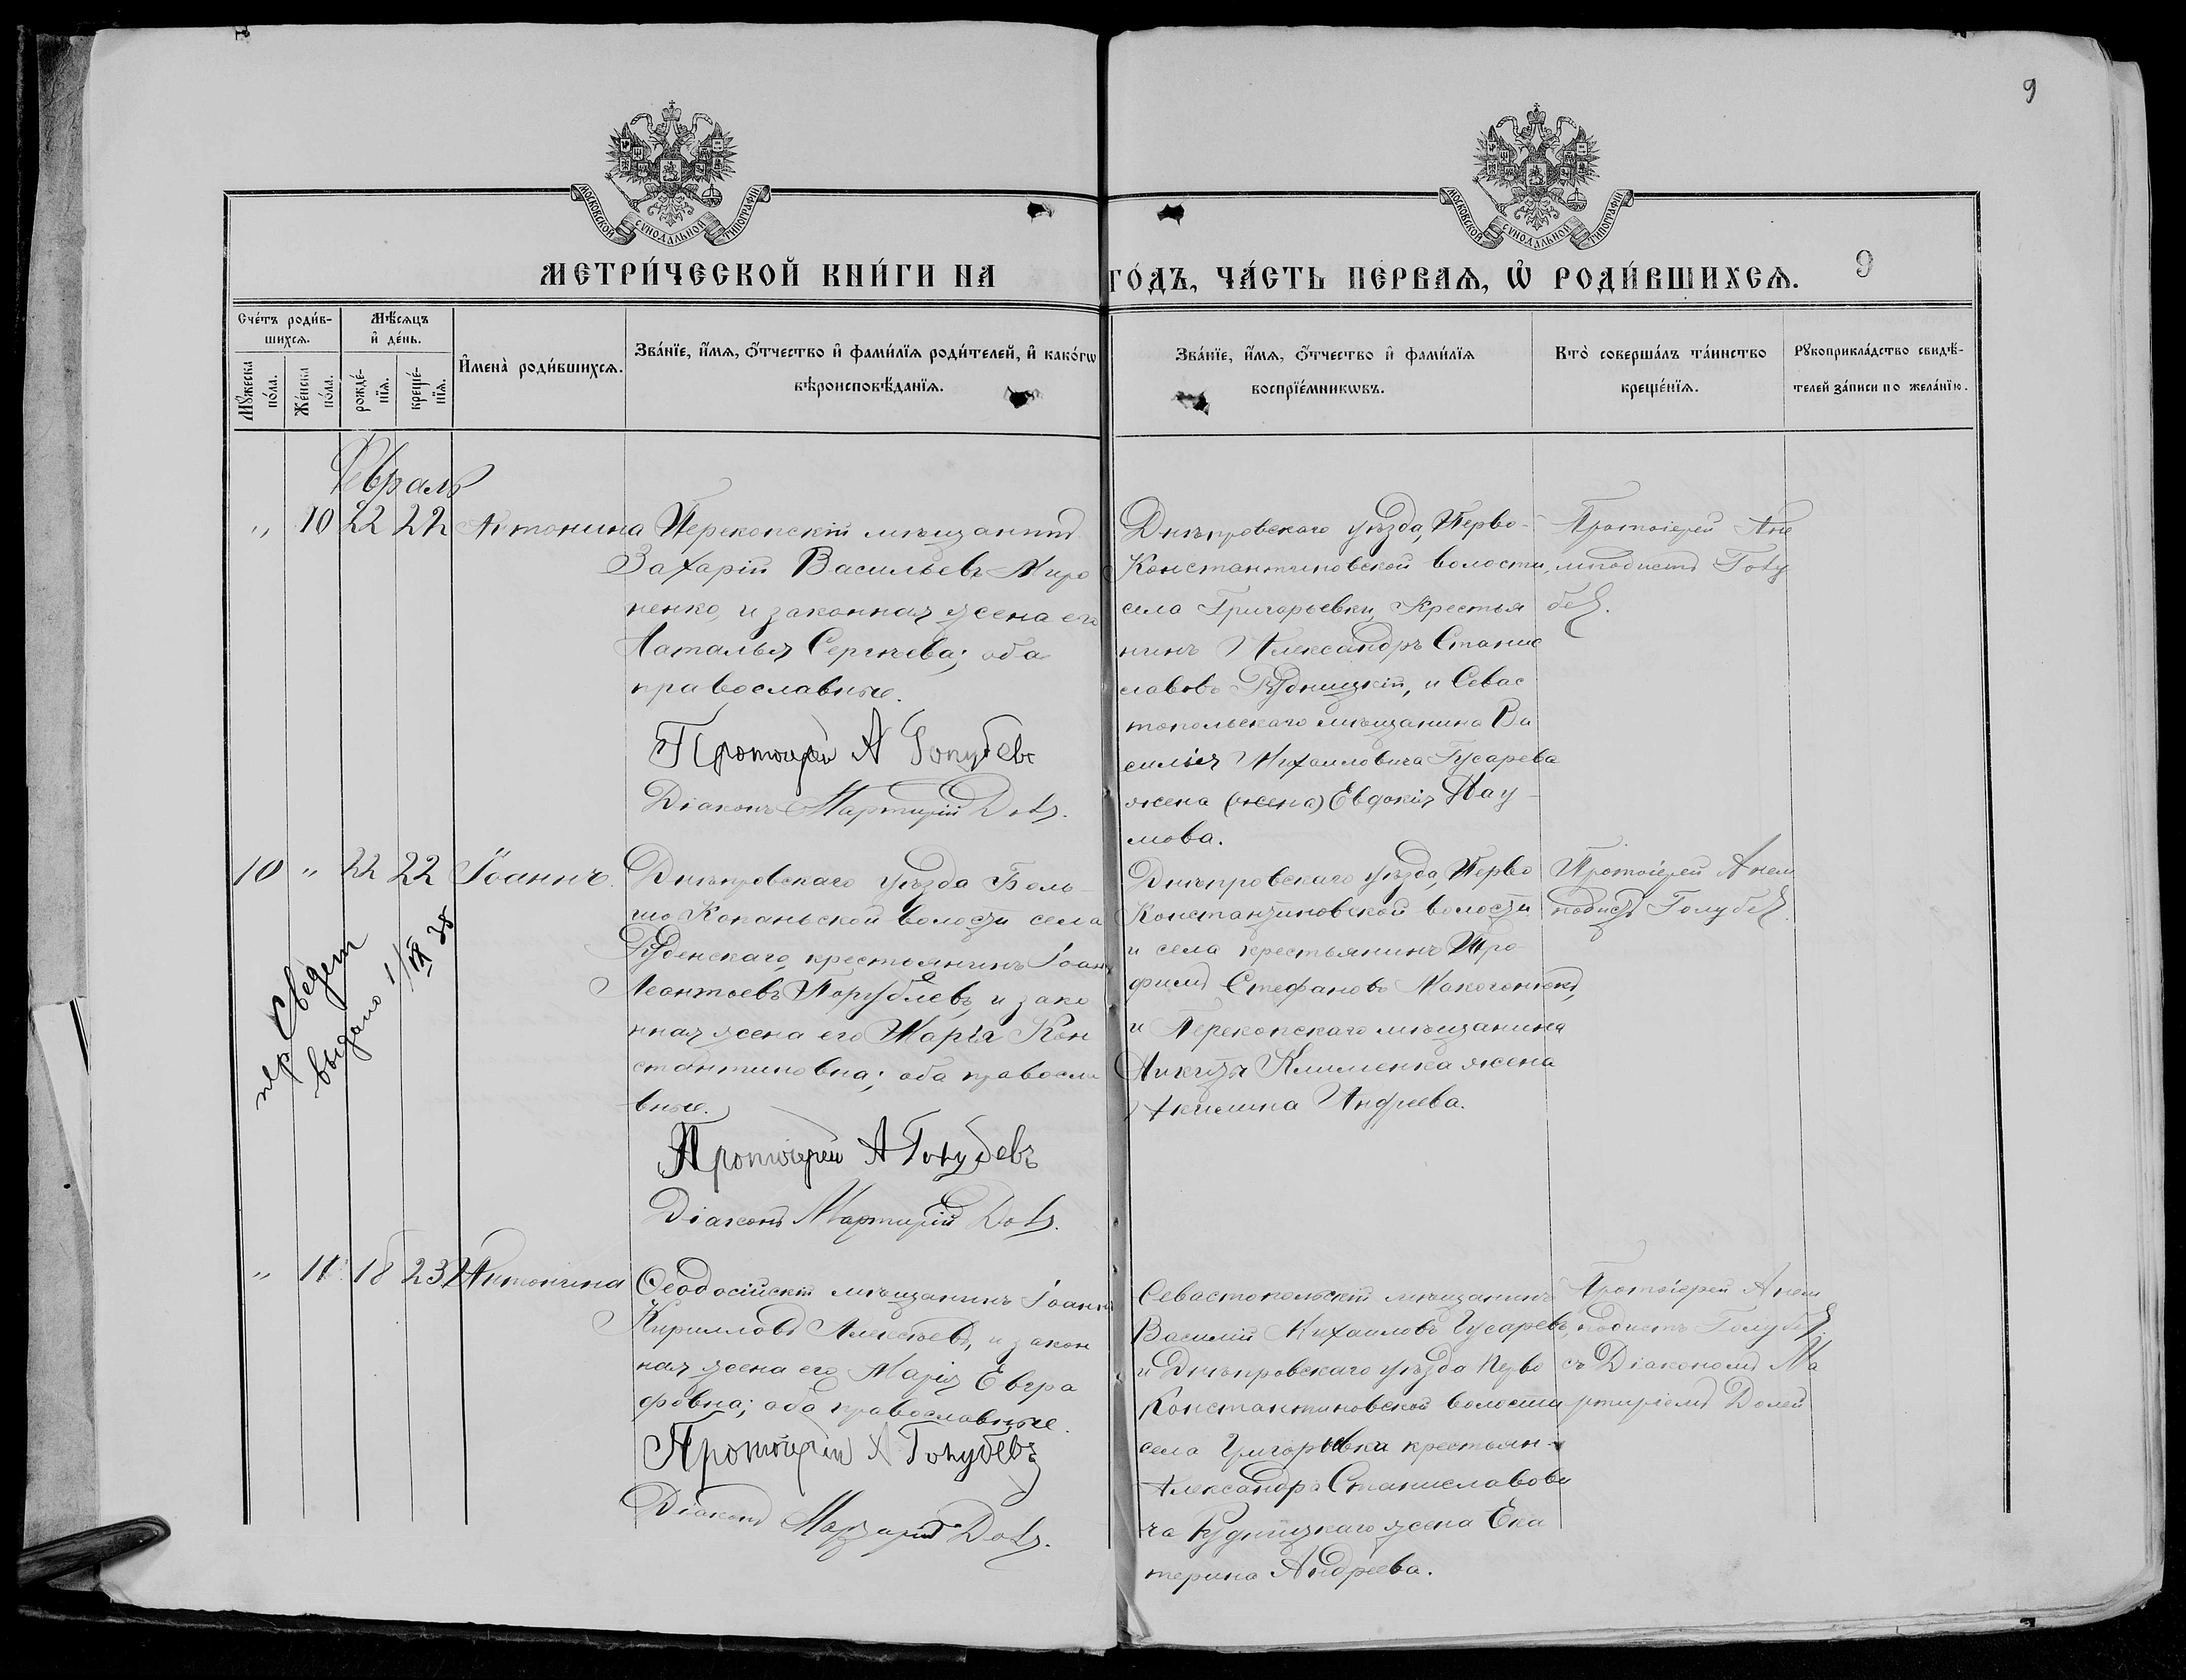 9
МОСКОВСКОЙ СѴНОДАЛЬНОЙ ТИПОГРАФІИ
МОСКОВСКОЙ СѴНОДАЛЬНОЙ ТИПОГРАФІИ
МЕТРИ́ЧЕСКОЙ КНИ́ГИ НА ГО́ДЪ, ЧА́СТЬ ПЕ́РВАѦ, Ѡ҆ РОДИ́ВШИХСѦ. 9
Сче́тъ роди́в-
шихсѧ.
Мꙋжеска
по́ла.
Же́нска
по́ла.
Мѣ́сѧцъ
и҆ де́нь.
рожде́-
нїѧ.
креще́-
нїѧ.
И҆мена̀ роди́вшихсѧ.
Зва́нїе, и҆́мѧ, ѻ҆́тчество и҆ фами́лїѧ роди́телей, и҆ како́гѡ
вѣроисповѣ́данїѧ.
Зва́нїе, и҆́мѧ, ѻ҆́тчество и҆ фами́лїѧ
воспрїе́мникѡвъ.
Кто̀ соверша́лъ та́инство
креще́нїѧ.
Рꙋкоприкла́дство свидѣ́-
телей за́писи по жела́нїю.
Февраль
„ 10 22 22 Антонина
Перекопскій мѣщанинъ
Захарій Васильевъ Миро
ненко, и законная жена его
Наталья Сергѣева; оба
православные.
Протоіерей А Голубевъ
Діаконъ Мартирій
Днѣпровскаго уѣзда, Перво-
Константиновской волости,
села Григорьевки, Крестья
нинъ Александръ Станис
славовъ Рудницкій, и Севас
топольскаго мѣщанина Ва
силія Михаиловича Гусарева
жена (жена) Евдокія Нау-
мова.
Протоіерей Ане
мподистъ Голу
бевъ.
10 „ 22 22 Іоаннъ.
Днѣпровскаго уѣзда Боль-
шо Копаньской волости села
крестьянинъ Іоан
Леонтьевъ Погублевъ, и зако
нная жена его Марія Кон
стантиновна; оба правосла
вные.
Протоіерей А Голубевъ
Діаконъ Мартирій
Днѣпровскаго уѣзда, Перво
Константиновской волости
и села крестьянинъ Тро
фимъ Стефановъ Макогонъ
и Перекопскаго мѣщанина
Никиты Клименка жена
Акилина Андреева.
Протоіерей Анем
подистъ Голубевъ.
Сведет
выдано 1/IX 38
„ 11 18 23 Антонина
Ѳеодосійскій мѣщанинъ Іоаннъ
Кирилловъ Алексѣевъ, и закон
ная жена его Марія Евгра
фовна; оба православные.
Протоіерей А Голубевъ
Діаконъ Мартирій
Севастопольскій мѣщанинъ
Василій Михаиловъ Гусаревъ,
и Днѣпровскаго уѣзда Перво
Константиновской волости
села Григорьвка крестьян-
Александра Станиславови
ча Рудницкаго жена Ека
терина Андреева.
Протоіерей Анем
подистъ Голубевъ
съ Діакономъ Ма
ртиріемъ Долей